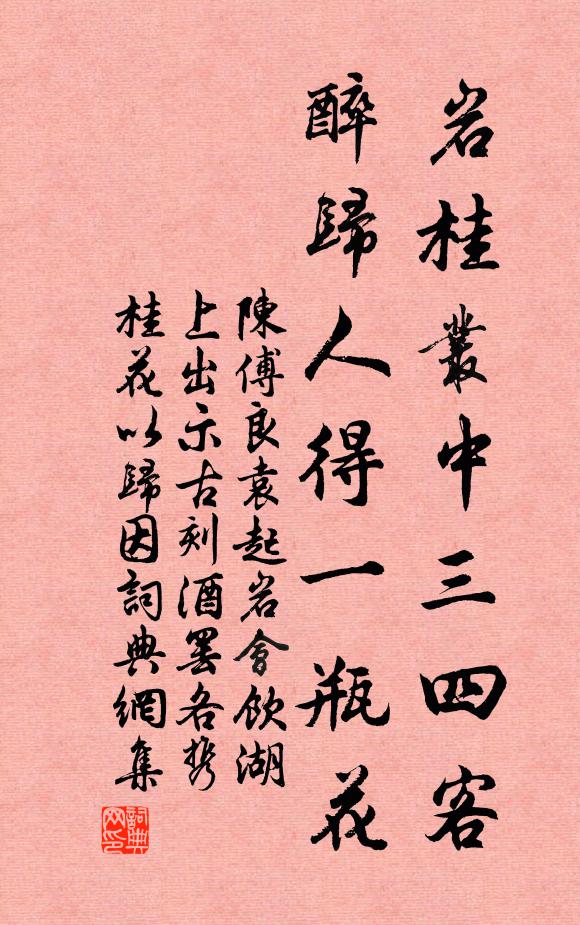 岩桂叢中三四客
醉歸人得一瓶花
陳傅良袁起岩會飲湖
上出示古刻酒罷各携
桂花以歸因詞典網集
詞典网印